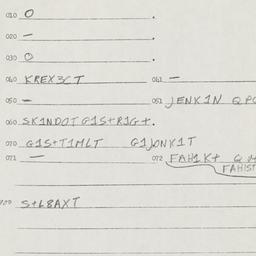 010 O .
020 – .
030 O .
040 KREX3CT 041 –
050 – 051 JENK1N
060 SK1NDOT G1S+R1G+.
070 G1S+T1MLT G1JONK1T
071 — 072 FAH1K+
FAHIST
S+L8AXT